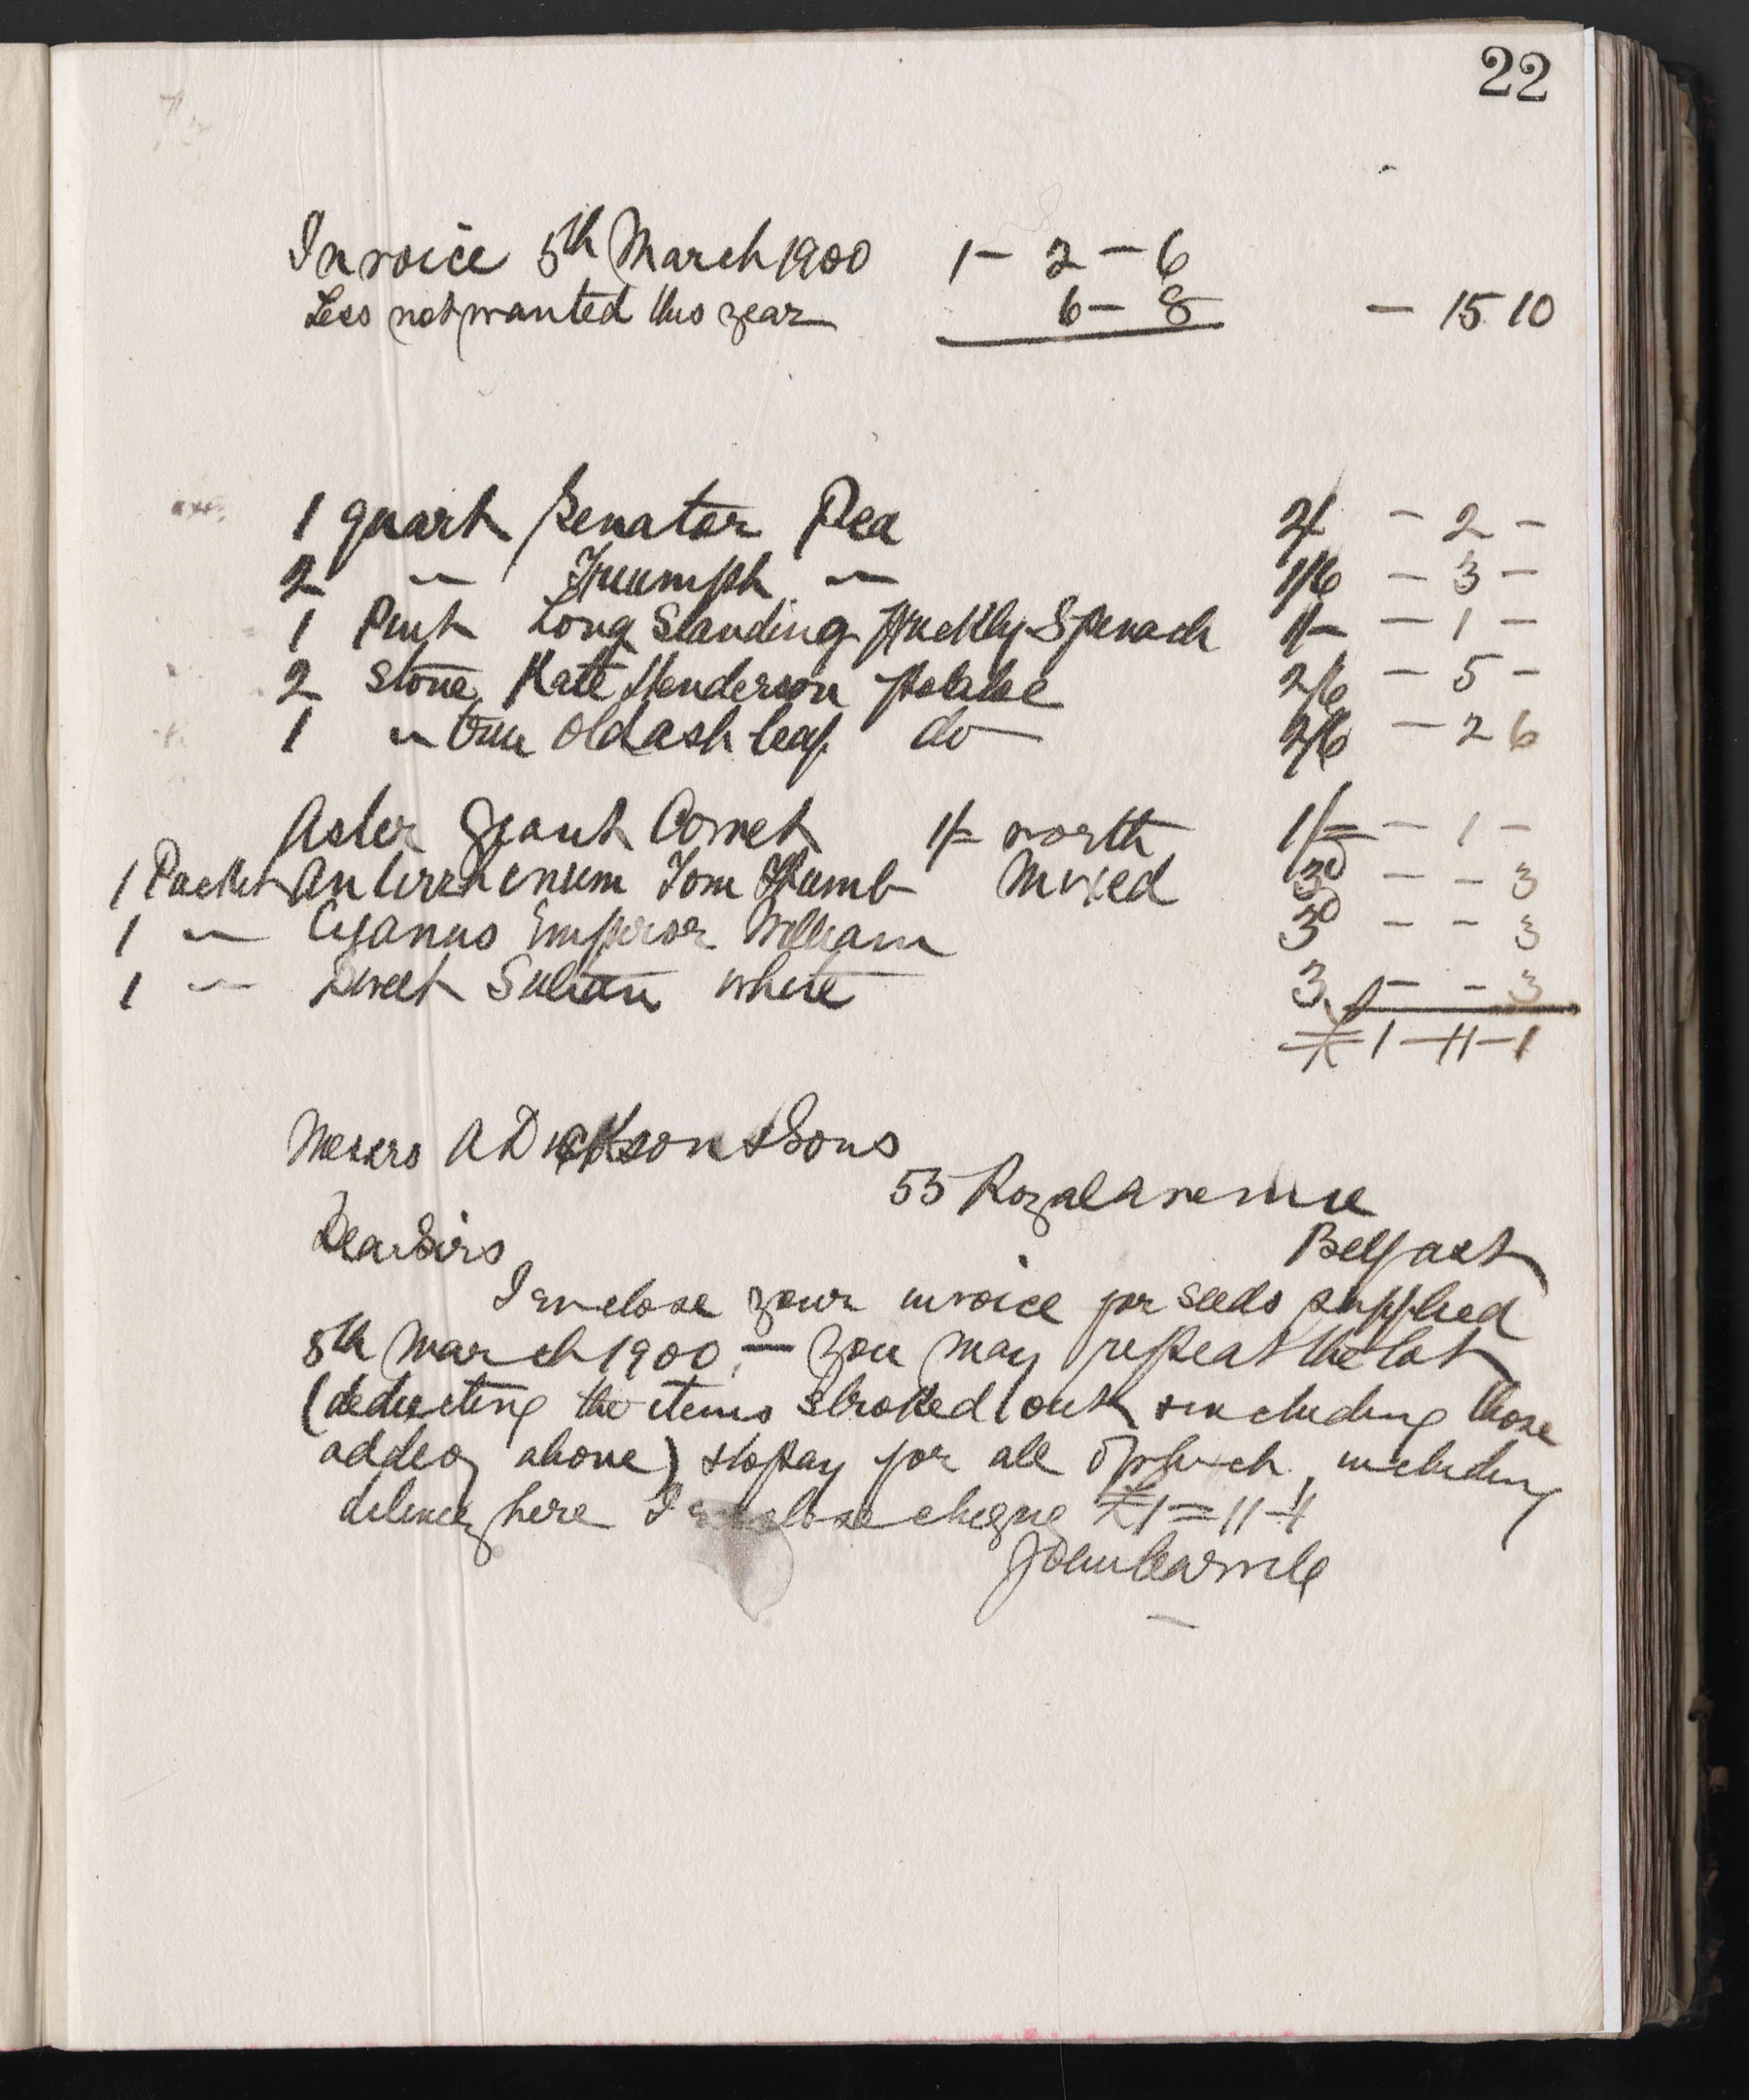 22
Invoice 5th March 1900 1 - 2 - 6
Less not wanted this year 6 - 8 - 15 10
1 quart Senator Pea 2/ - 2 -
2 " Triumph " 1/6 - 3 -
1 Pint Long Standing Prickly Spinach 1/- - 1 -
2 Stone Kate Henderson potatoe 2/6 - 5 -
1 " true old ash leaf do 2/6 - 2 6
Aster Giant Comet 1/= worth 1/= - 1 -
1 Packet Antirrhinum Tom Thumb Mixed 3D - - 3
1 " Cyanus Emperor William 3D - - 3
1 " Sweet Sultan white 3 - - 3
£1-11-1
Messrs A Dickson & Sons
55 Royal avenue
Belfast
Dear Sirs
I enclose your invoice for seeds supplied
5th March 1900, - you may repeat the lot
(deducting the items stroked out & including those
added above) & to pay for all of which, including
delivery here I enclose cheque £1=11-1
John